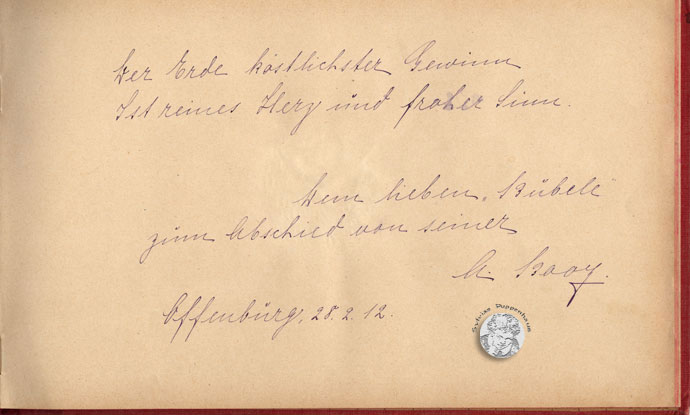 Der Erde köstlichster Gewinn
Ist reines Herz und froher Sinn.
Dem lieben „Bübele"
zum Abschied von seiner
A.
Offenburg, 28.2.12.
Puppenhaus